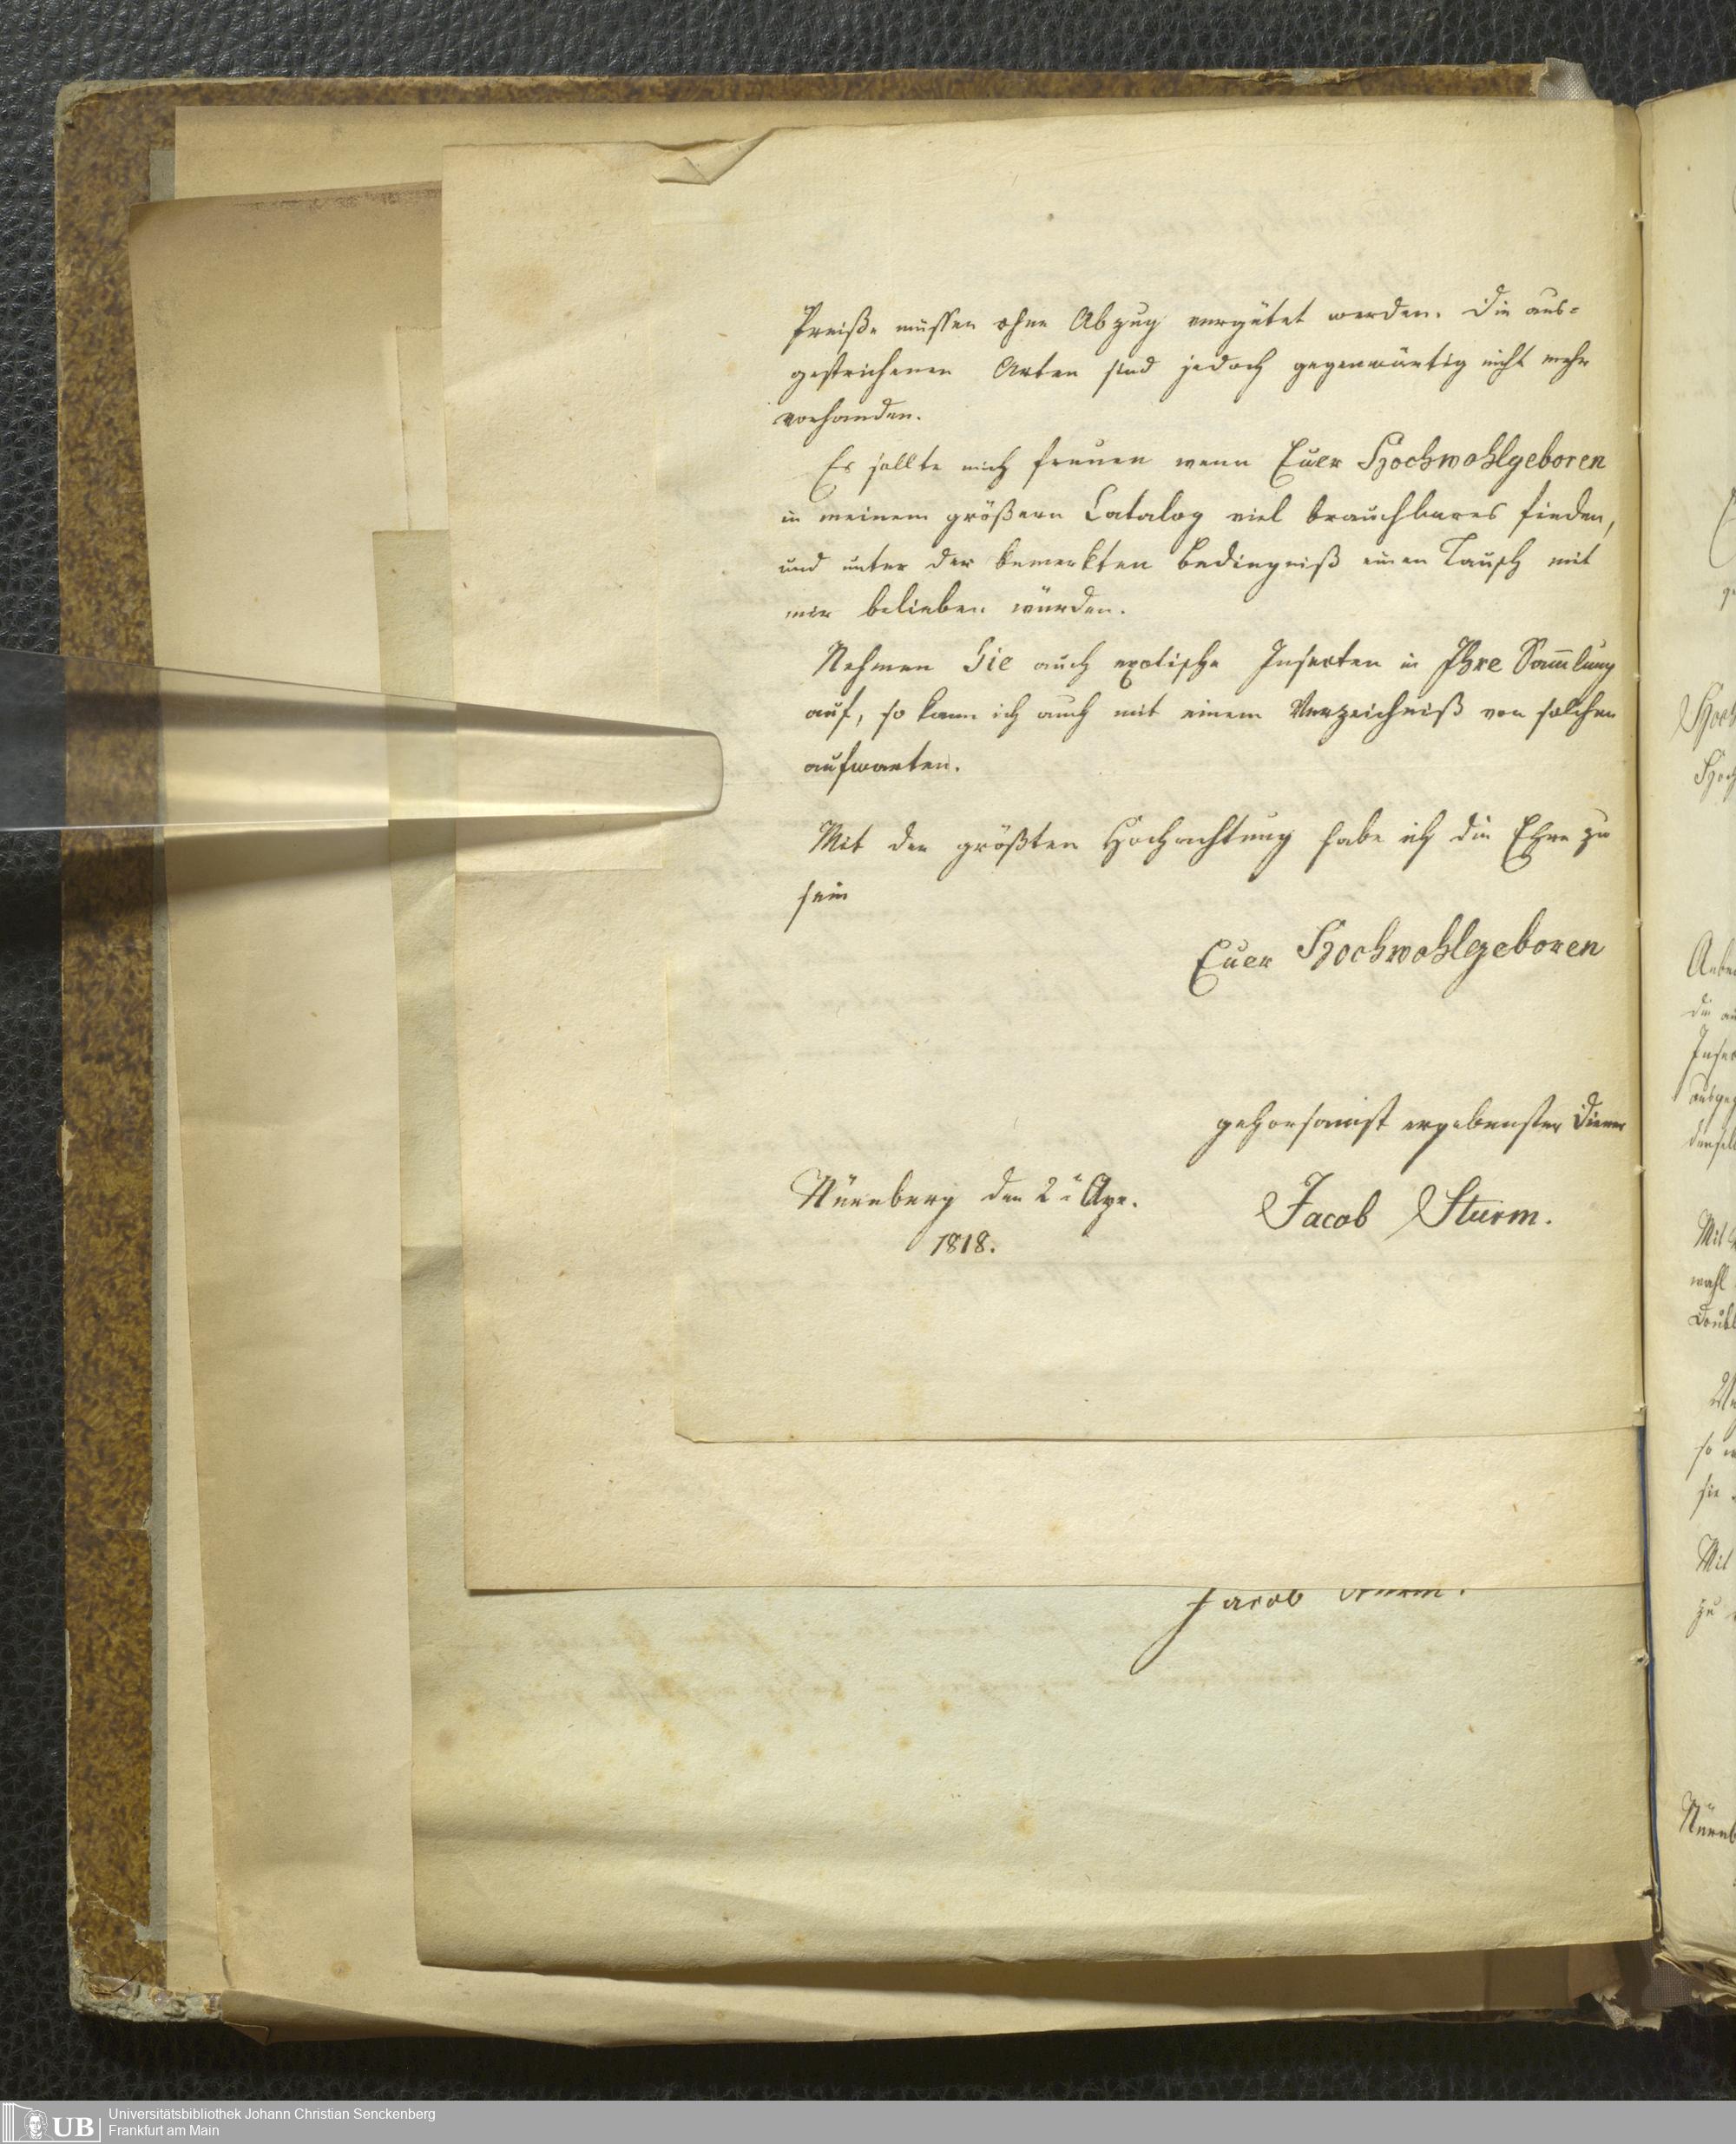 Preiße müssen ohne Abzug vergütet werden. Die aus-
gestrichenen Arten sind jedoch gegenwärtig nicht mehr
vorhanden.
Es sollte mich freuen wenn Euer Hochwohlgeboren
in meinem größern Catalog viel brauchbares finden,
und unter der bemerkten Bedingniß einen Tausch mit
mir belieben würden.
Nehmen Sie auch exotische Insecten in Ihre Sam̅lung
auf, so kann ich auch mit einem Verzeichniß von solchen
aufwarten.
Mit der größten Hochachtung habe ich die Ehre zu
sein
Euer Hochwohlgeboren
gehorsamst ergebenster Diener
Nürnberg den 2 Apr.
1818.
Jacob Sturm.
Jacob Sturm.
UB
Universitätsbibliothek Johann Christian Senckenberg
Frankfurt am Main